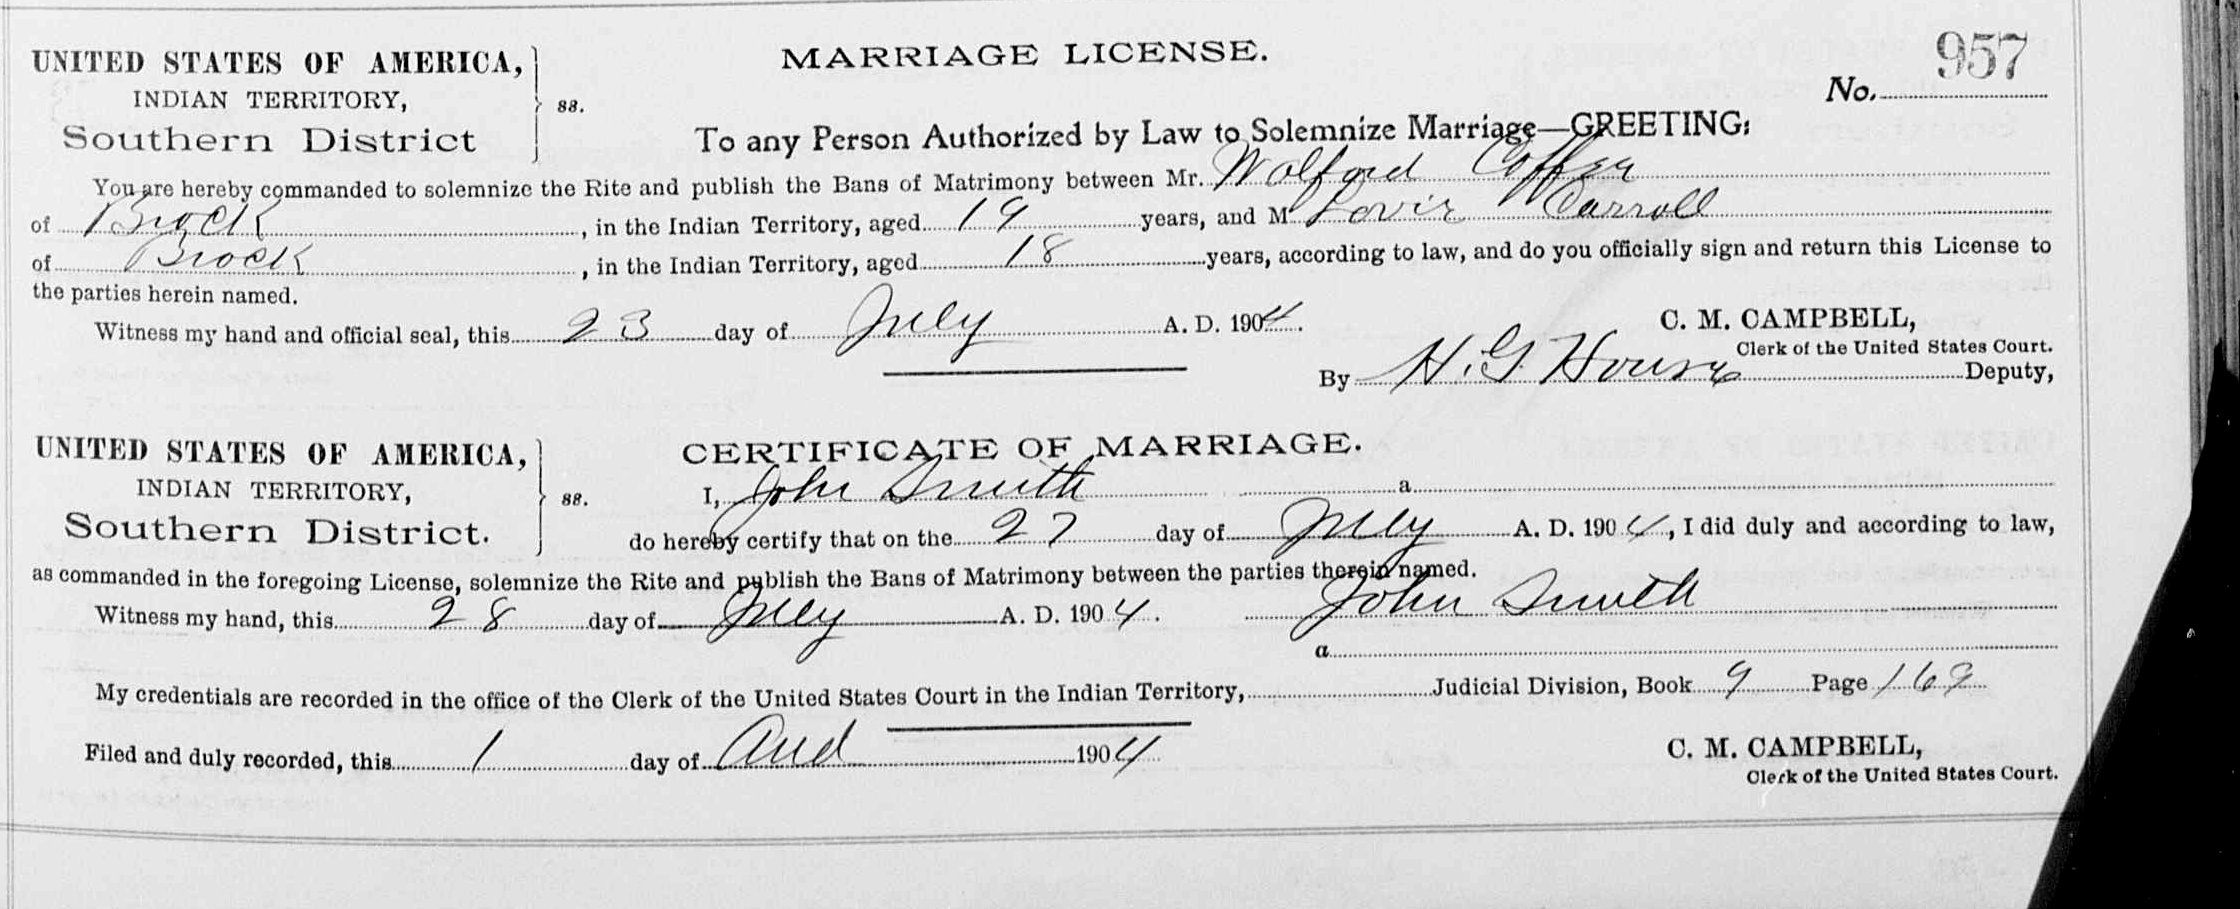 957
UNITED STATES OF AMERICA,
INDIAN TERRITORY,
Southern District
ss.
MARRIAGE LICENSE.
No.
To any Person Authorized by Law to Solemnize Marriage—GREETING:
You are hereby commanded to solemnize the Rite and publish the Bans of Matrimony between Mr. Wolford Coffer
of Brock, in the Indian Territory, aged 19 years, and M Carroll
of Brock, in the Indian Territory, aged 18 years, according to law, and do you officially sign and return this License to
the parties herein named.
Witness my hand and official seal, this 23 day of July A. D. 1904.
C. M. CAMPBELL,
Clerk of the United States Court.
By H. G. House Deputy,
UNITED STATES OF AMERICA,
INDIAN TERRITORY,
Southern District.
ss.
CERTIFICATE OF MARRIAGE.
I, John Smith a
do hereby certify that on the 27 day of July A. D. 1904, I did duly and according to law,
as commanded in the foregoing License, solemnize the Rite and publish the Bans of Matrimony between the parties therein named.
Witness my hand, this 28 day of July A. D. 1904. John Smith
a
My credentials are recorded in the office of the Clerk of the United States Court in the Indian Territory, Judicial Division, Book 9 Page 169
Filed and duly recorded, this 1 day of Aud 1904
C. M. CAMPBELL,
Clerk of the United States Court.